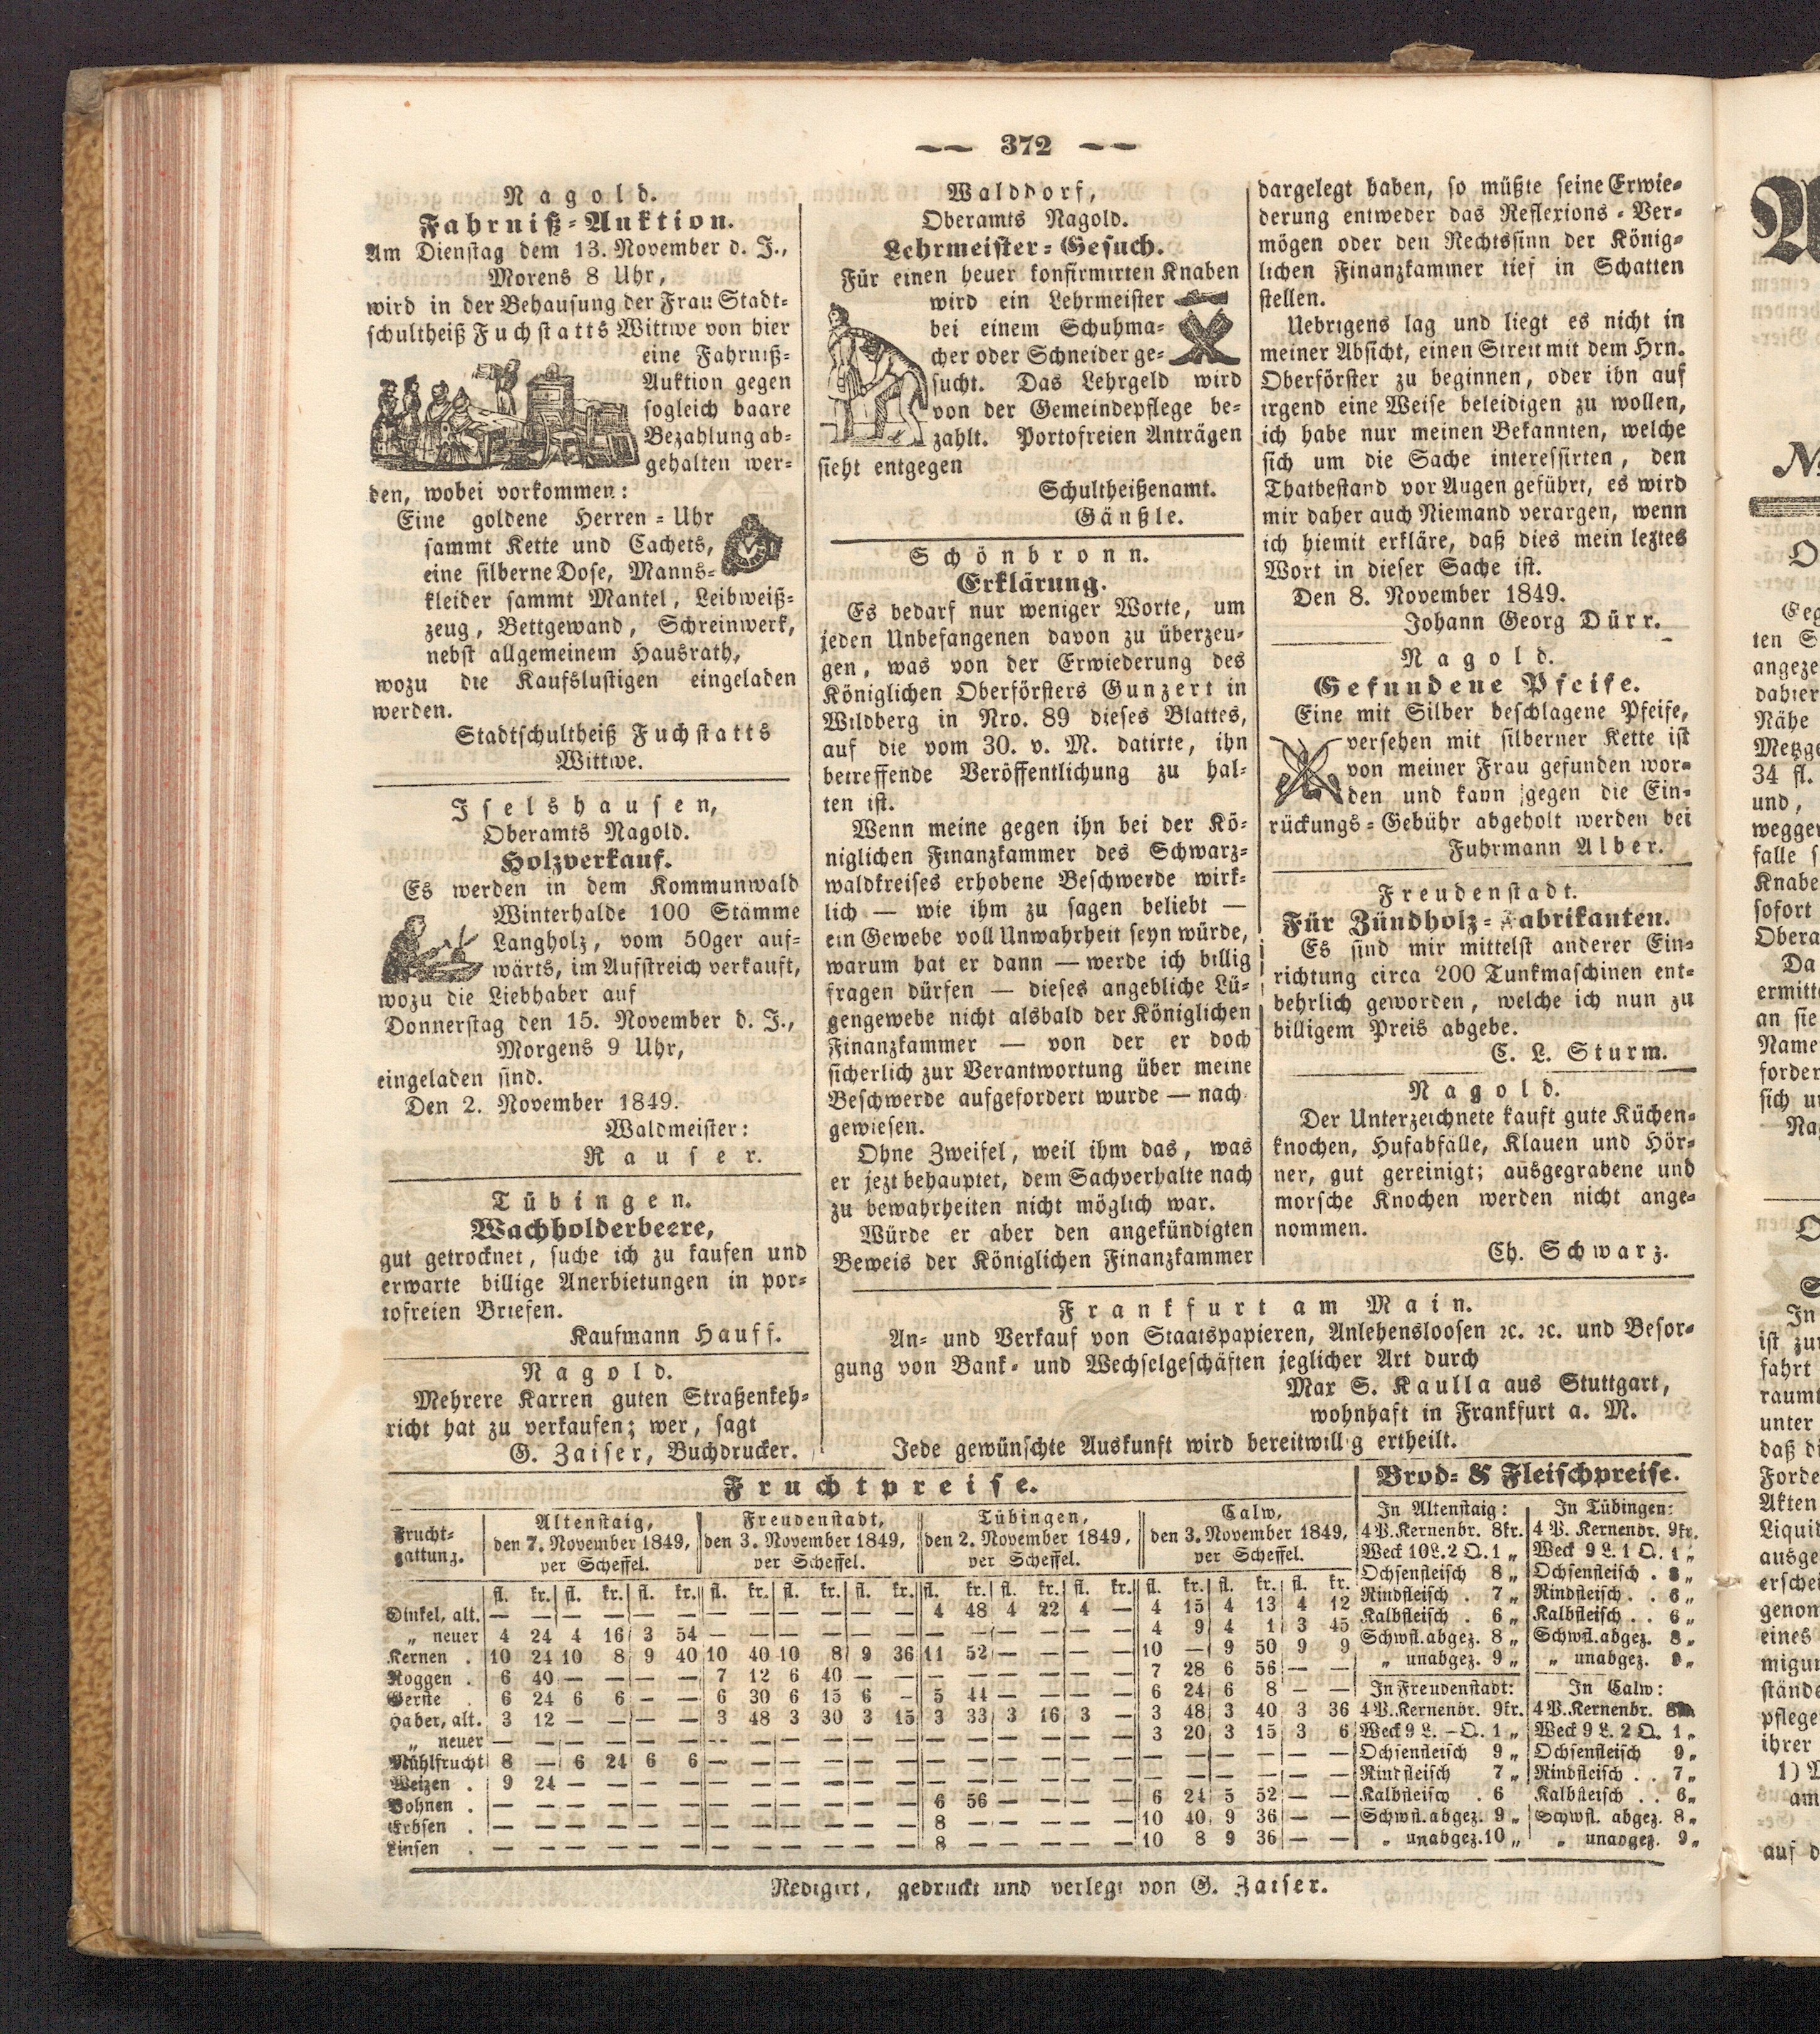 372
Nagold.
Fahrniß-Auktion.
Am Dienstag dem 13. November d. J.,
Morens 8 Uhr,
wird in der Behausung der Frau Stadt-
schultheiß Fuchstatts Wittwe von hier
eine Fahrniß-
Auktion gegen
sogleich baare
Bezahlung ab-
gehalten wer-
den, wobei vorkommen:
Eine goldene Herren-Uhr
sammt Kette und Cachets,
eine silberne Dose, Manns-
kleider sammt Mantel, Leibweiß-
zeug, Bettgewand, Schreinwerk,
nebst allgemeinem Hausrath,
wozu die Kaufslustigen eingeladen
werden.
Stadtschultheiß Fuchstatts
Wittwe.
Iselshausen,
Oberamts Nagold.
Holzverkauf.
Es werden in dem Kommunwald
Winterhalde 100 Stämme
Langholz, vom 50ger auf-
wärts, im Aufstreich verkauft,
wozu die Liebhaber auf
Donnerstag den 15. November d. J.,
Morgens 9 Uhr,
eingeladen sind.
Den 2. November 1849.
Waldmeister:
Rauser.
Tübingen.
Wachholderbeere,
gut getrocknet, suche ich zu kaufen und
erwarte billige Anerbietungen in por-
tofreien Briefen.
Kaufmann Hauff.
Nagold.
Mehrere Karren guten Straßenkeh-
richt hat zu verkaufen; wer, sagt
G. Zaiser, Buchdrucker.
Walddorf,
Oberamts Nagold.
Lehrmeister-Gesuch.
Für einen heuer konfirmirten Knaben
wird ein Lehrmeister
bei einem Schuhma-
cher oder Schneider ge-
sucht. Das Lehrgeld wird
von der Gemeindepflege be-
zahlt. Portofreien Anträgen
sieht entgegen
Schultheißenamt.
Gänßle.
Schönbronn.
Erklärung.
Es bedarf nur weniger Worte, um
jeden Unbefangenen davon zu überzeu-
gen, was von der Erwiederung des
Königlichen Oberförsters Gunzert in
Wildberg in Nro. 89 dieses Blattes,
auf die vom 30. v. M. datirte, ihn
betreffende Veröffentlichung zu hal-
ten ist.
Wenn meine gegen ihn bei der Kö-
niglichen Finanzkammer des Schwarz-
waldkreises erhobene Beschwerde wirk-
lich — wie ihm zu sagen beliebt —
ein Gewebe voll Unwahrheit seyn würde,
warum hat er dann — werde ich billig
fragen dürfen — dieses angebliche Lü-
gengewebe nicht alsbald der Königlichen
Finanzkammer — von der er doch
sicherlich zur Verantwortung über meine
Beschwerde aufgefordert wurde — nach
gewiesen.
Ohne Zweifel, weil ihm das, was
er jezt behauptet, dem Sachverhalte nach
zu bewahrheiten nicht möglich war.
Würde er aber den angekündigten
Beweis der Königlichen Finanzkammer
dargelegt haben, so müßte seine Erwie-
derung entweder das Reflexions-Ver-
mögen oder den Rechtssinn der König-
lichen Finanzkammer tief in Schatten
stellen.
Uebrigens lag und liegt es nicht in
meiner Absicht, einen Streit mit dem Hrn.
Oberförster zu beginnen, oder ihn auf
irgend eine Weise beleidigen zu wollen,
ich habe nur meinen Bekannten, welche
sich um die Sache interessirten, den
Thatbestand vor Augen geführt, es wird
mir daher auch Niemand verargen, wenn
ich hiemit erkläre, daß dies mein leztes
Wort in dieser Sache ist.
Den 8. November 1849.
Johann Georg Dürr.
Nagold.
Gefundene Pfeife.
Eine mit Silber beschlagene Pfeife,
versehen mit silberner Kette ist
von meiner Frau gefunden wor-
den und kann gegen die Ein-
rückungs-Gebühr abgeholt werden bei
Fuhrmann Alber.
Freudenstadt.
Für Zündholz-Fabrikanten.
Es sind mir mittelst anderer Ein-
richtung circa 200 Tunkmaschinen ent-
behrlich geworden, welche ich nun zu
billigem Preis abgebe.
C. L. Sturm.
Nagold.
Der Unterzeichnete kauft gute Küchen-
knochen, Hufabfälle, Klauen und Hör-
ner, gut gereinigt; ausgegrabene und
morsche Knochen werden nicht ange-
nommen.
Ch. Schwarz.
Frankfurt am Main.
An- und Verkauf von Staatspapieren, Anlehensloosen ꝛc. ꝛc. und Besor-
gung von Bank- und Wechselgeschäften jeglicher Art durch
Max S. Kaulla aus Stuttgart,
wohnhaft in Frankfurt a. M.
Jede gewünschte Auskunft wird bereitwillig ertheilt.
Fruchtpreise.
Frucht-gattung. | Altenstaig, den 7. November 1849, per Scheffel. | Freudenstadt, den 3. November 1849, per Scheffel. | Tübingen, den 2. November 1849, per Scheffel. | Calw, den 3. November 1849, per Scheffel.
fl. kr. fl. kr. fl. kr. | fl. kr. fl. kr. fl. kr. | fl. kr. fl. kr. fl. kr. | fl. kr. fl. kr. fl. kr.
Dinkel, alt. — — — — — — | — — — — — — | 4 48 4 22 4 — | 4 15 4 13 4 12
„ neuer 4 24 4 16 3 54 | — — — — — — | — — — — — — | 4 9 4 1 3 45
Kernen . 10 24 10 8 9 40 | 10 40 10 8 9 36 | 11 52 — — — — | 10 — 9 50 9 9
Roggen . 6 40 — — — — | 7 12 6 40 — — | — — — — — — | 7 28 6 56 — —
Gerste . 6 24 6 6 — — | 6 30 6 15 6 — | 5 44 — — — — | 6 24 6 8 — —
Haber, alt. 3 12 — — — — | 3 48 3 30 3 15 | 3 33 3 16 3 — | 3 48 3 40 3 36
„ neuer — — — — — — | — — — — — — | — — — — — — | 3 20 3 15 3 6
Mühlfrucht 8 — 6 24 6 6 | — — — — — — | — — — — — — | — — — — — —
Weizen . 9 24 — — — — | — — — — — — | — — — — — — | — — — — — —
Bohnen . — — — — — — | — — — — — — | 6 56 — — — — | 6 24 5 52 — —
Erbsen . — — — — — — | — — — — — — | 8 — — — — — | 10 40 9 36 — —
Linsen . — — — — — — | — — — — — — | 8 — — — — — | 10 8 9 36 — —
Brod- & Fleischpreise.
In Altenstaig:
4 P. Kernenbr. 8kr.
Weck 10 L. 2 Q. 1 „
Ochsenfleisch 8 „
Rindfleisch . 7 „
Kalbfleisch . 6 „
Schwfl. abgez. 8 „
„ unabgez. 9 „
In Tübingen:
4 P. Kernenbr. 9kr.
Weck 9 L. 1 Q. 1 „
Ochsenfleisch . 8 „
Rindfleisch . . 6 „
Kalbfleisch . . 6 „
Schwfl. abgez. 8 „
„ unabgez. 9 „
In Freudenstadt:
4 P. Kernenbr. 9kr.
Weck 9 L. — Q. 1 „
Ochsenfleisch 9 „
Rindfleisch 7 „
Kalbfleisch . 6
Schwfl. abgez. 9 „
„ unabgez. 10 „
In Calw:
4 P. Kernenbr.
Weck 9 L. 2 Q. 1 „
Ochsenfleisch 9 „
Rindfleisch . . 7 „
Kalbfleisch . . 6 „
Schwfl. abgez. 8 „
„ unabgez. 9 „
Redigirt, gedruckt und verlegt von G. Zaiser.